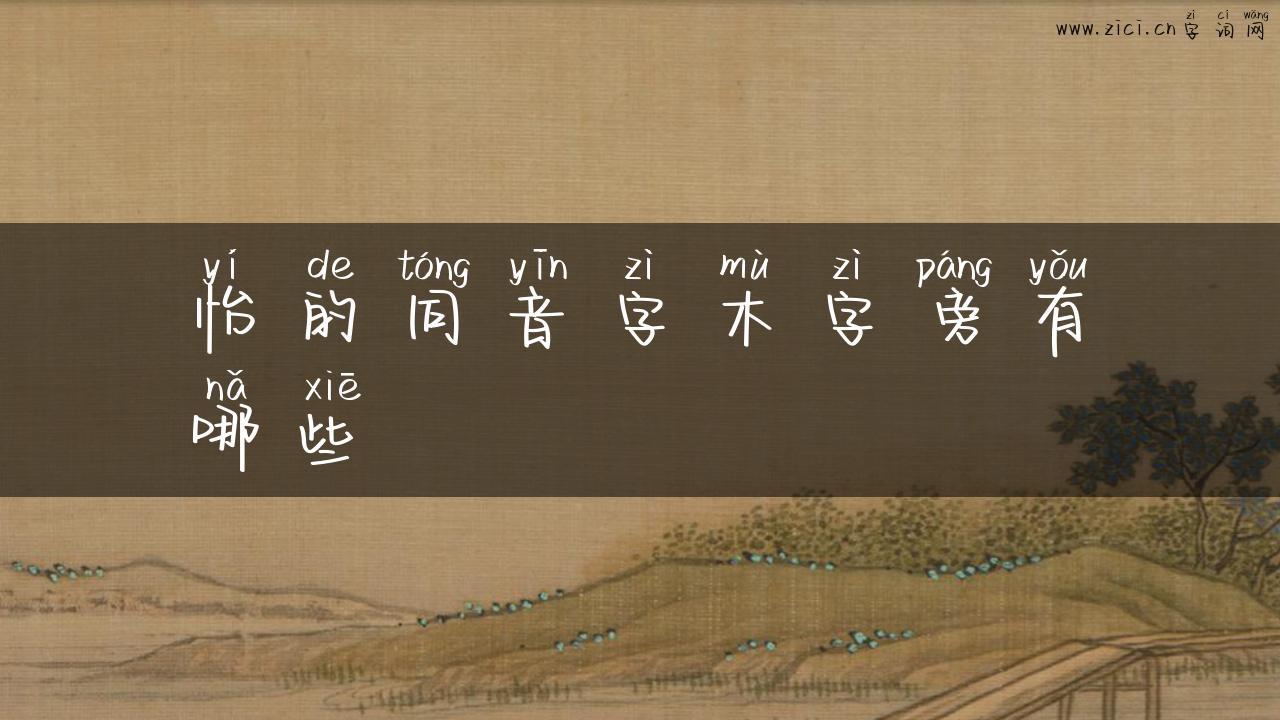 zì cí wǎng
www.zici.cn字词网
yí de tóng yīn zì mù zì páng yǒu
怡的同音字木字旁有
nǎ xiē
哪些